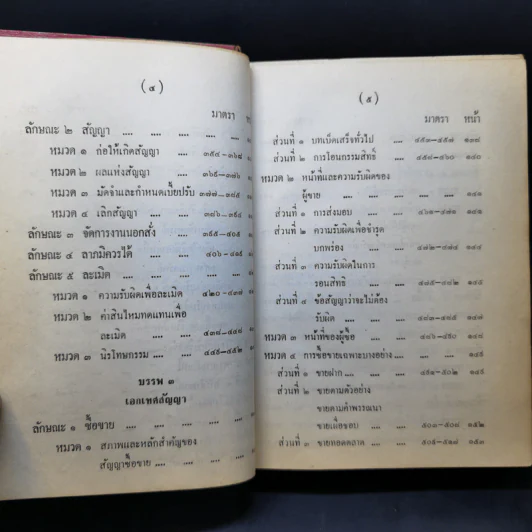 (๔)
มาตรา ห
ลักษณะ ๒ สัญญา .... .... .... .... ....
หมวด ๑ ก่อให้เกิดสัญญา .... ๓๕๔–๓๖๘
หมวด ๒ ผลแห่งสัญญา .... ....
หมวด ๓ มัดจำและกำหนดเบี้ยปรับ ๓๗๗–๓๘๕
หมวด ๔ เลิกสัญญา .... .... ๓๘๖–๓๙๔
ลักษณะ ๓ จัดการงานนอกสั่ง .... ๓๙๕–๔๐๕
ลักษณะ ๔ ลาภมิควรได้ .... .... ๔๐๖–๔๑๙
ลักษณะ ๕ ละเมิด .... .... .... ....
หมวด ๑ ความรับผิดเพื่อละเมิด ๔๒๐–๔๓๗
หมวด ๒ ค่าสินไหมทดแทนเพื่อ
ละเมิด .... .... ๔๓๘–๔๔๘
หมวด ๓ นิรโทษกรรม .... .... ๔๔๙–๔๕๒
บรรพ ๓
เอกเทศสัญญา
ลักษณะ ๑ ซื้อขาย .... .... .... ....
หมวด ๑ สภาพและหลักสำคัญของ
สัญญาซื้อขาย .... .... ....
(๕)
มาตรา หน้า
ส่วนที่ ๑ บทเบ็ดเสร็จทั่วไป .... ๔๕๓–๔๕๗ ๑๓๙
ส่วนที่ ๒ การโอนกรรมสิทธิ์ .... ๔๕๘–๔๖๐ ๑๔๐
หมวด ๒ หน้าที่และความรับผิดของ
ผู้ขาย .... .... .... .... .... ๑๔๑
ส่วนที่ ๑ การส่งมอบ .... .... ๔๖๑–๔๗๑ ๑๔๑
ส่วนที่ ๒ ความรับผิดเพื่อชำรุด
บกพร่อง .... .... ๔๗๒–๔๗๔ ๑๔๔
ส่วนที่ ๓ ความรับผิดในการ
รอนสิทธิ .... .... ๔๗๕–๔๘๒ ๑๔๕
ส่วนที่ ๔ ข้อสัญญาว่าจะไม่ต้อง
รับผิด .... .... ๔๘๓–๔๘๕
หมวด ๓ หน้าที่ของผู้ซื้อ .... ๔๘๖–๔๙๐ ๑๔๘
หมวด ๔ การซื้อขายเฉพาะบางอย่าง .... .... ๑๔๙
ส่วนที่ ๑ ขายฝาก .... .... .... ๔๙๑–๕๐๒ ๑๔๙
ส่วนที่ ๒ ขายตามตัวอย่าง
ขายตามคำพรรณนา
ขายเผื่อชอบ .... .... ๕๐๓–๕๐๘ ๑๕๒
ส่วนที่ ๓ ขายทอดตลาด .... .... ๕๐๙–๕๑๗ ๑๕๓